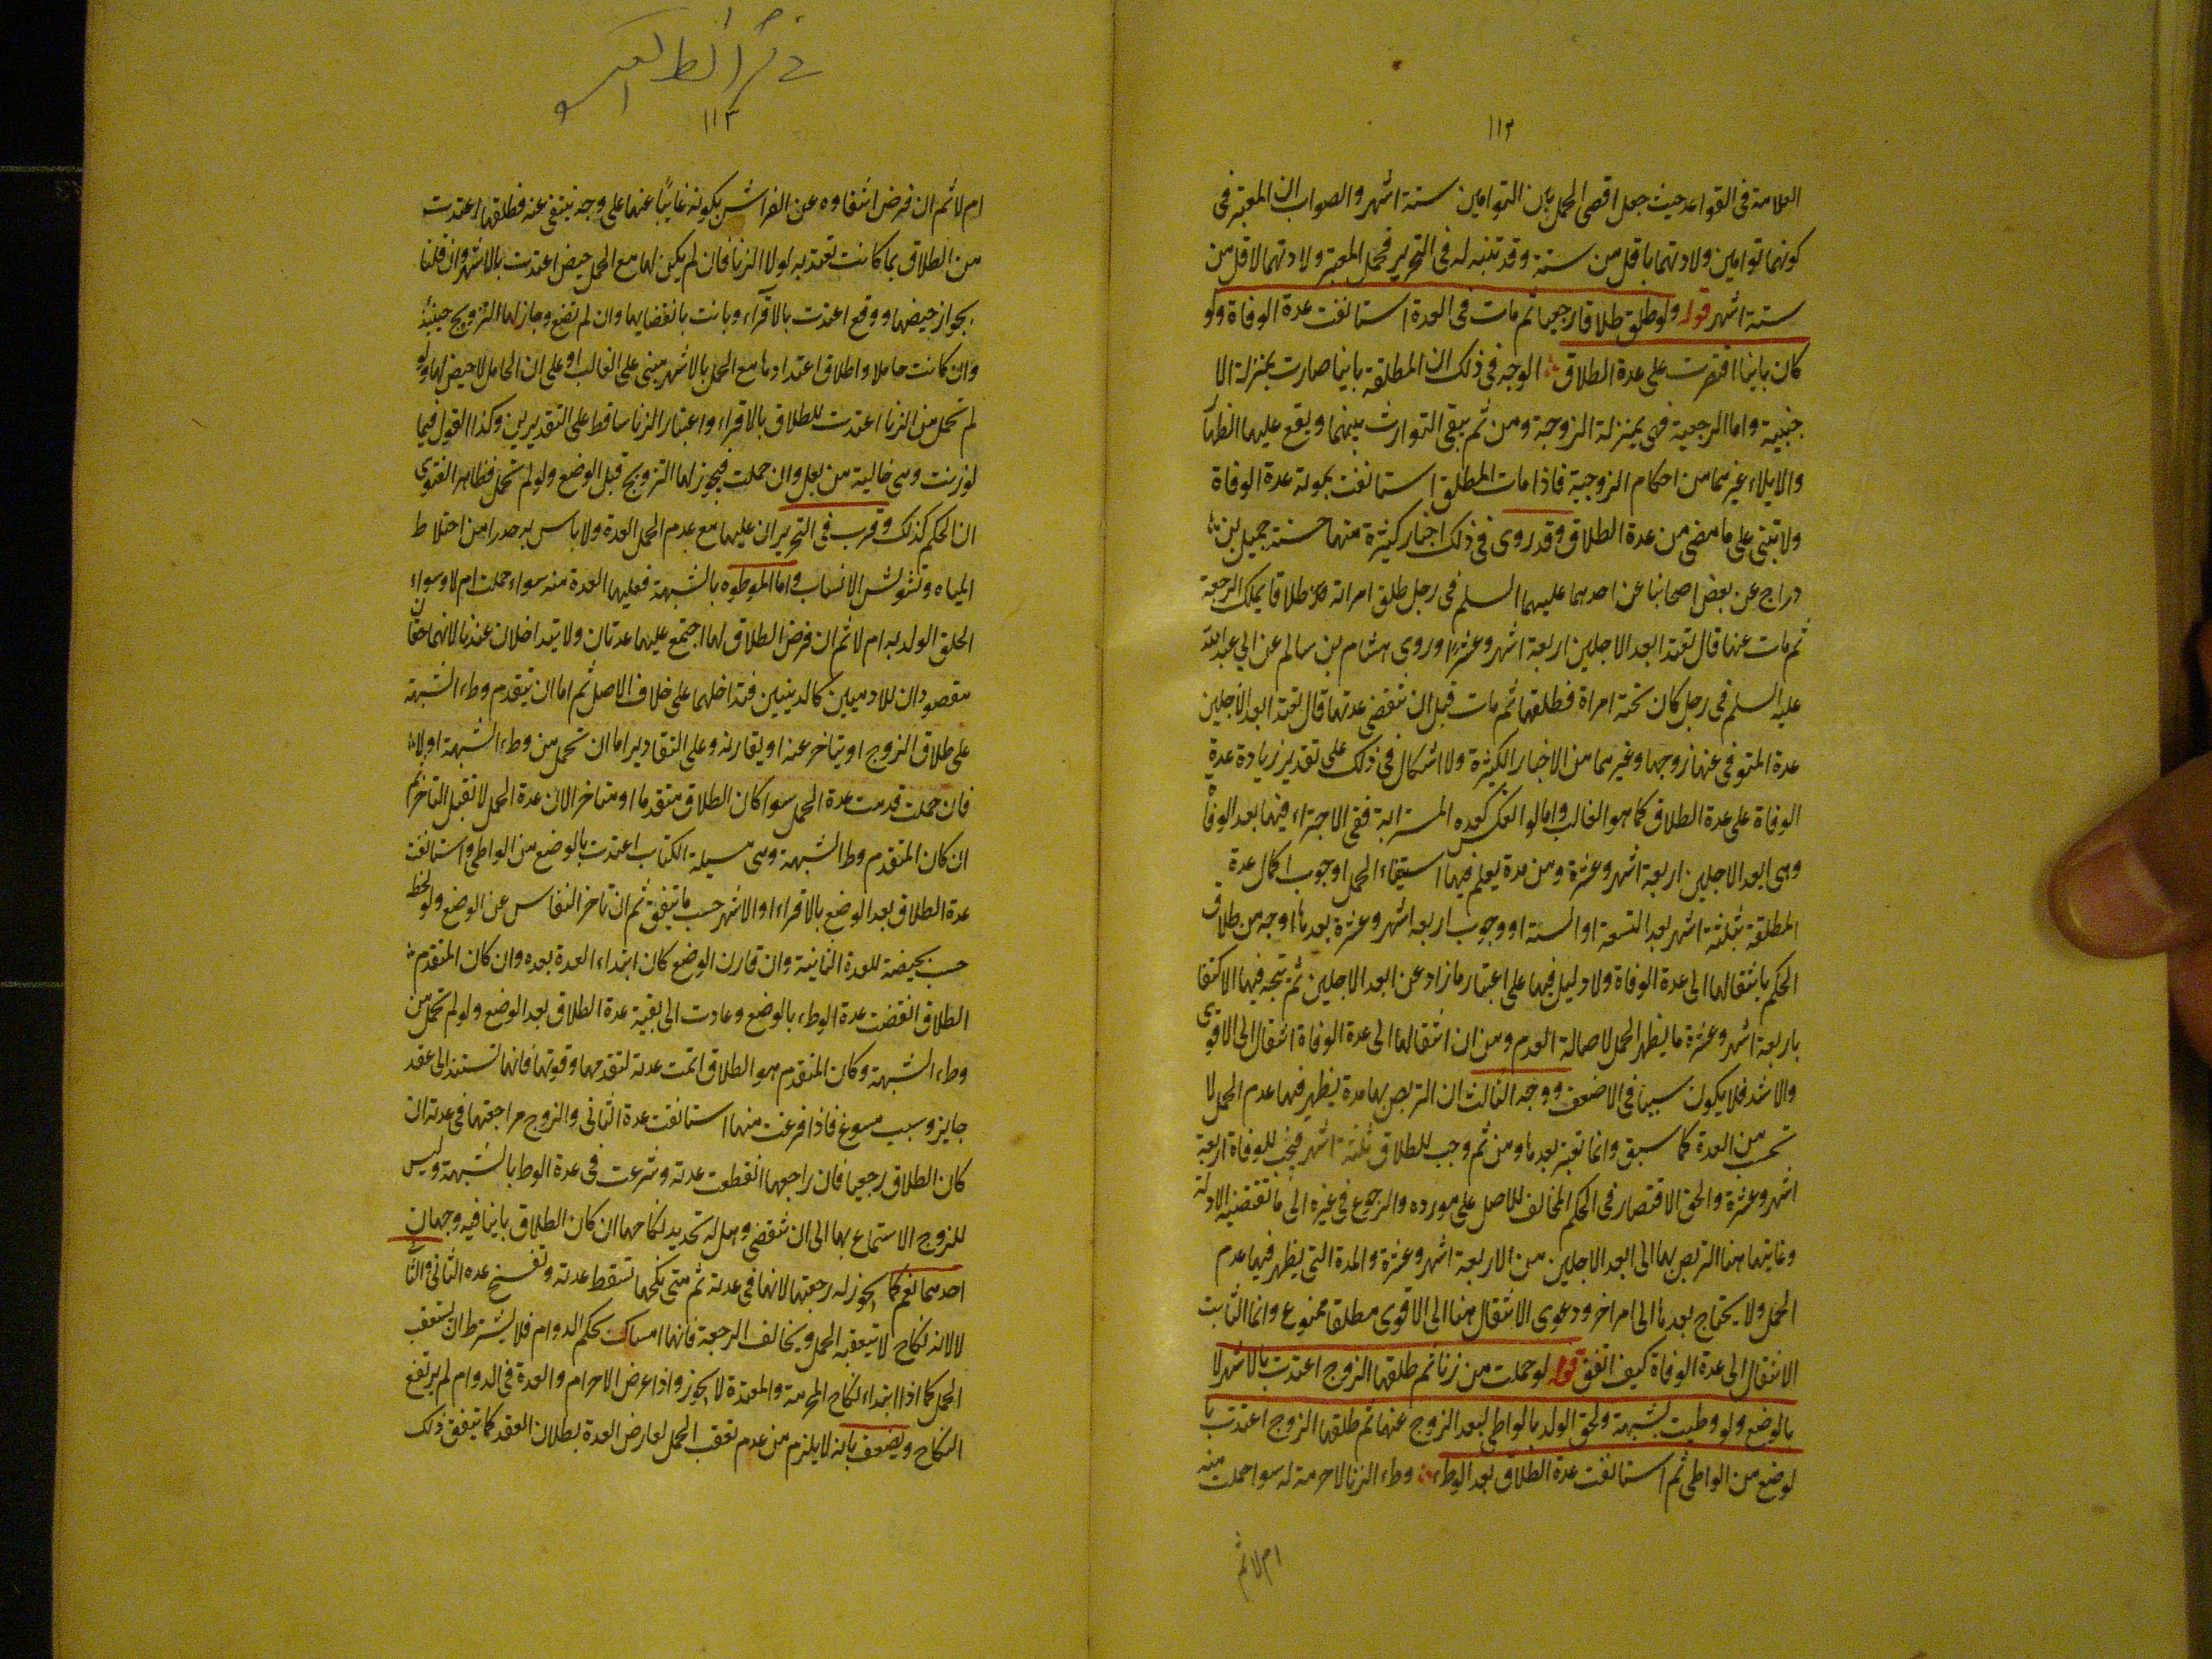 ١١٢
العلامة فى القواعد حيث جعل اقصى الحمل بين التوامين ستة اشهر والصواب ان المعتبر فى
كونهما توامين ولادتهما باقل من ستة وقد تنبه له فى التحرير فجعل المعتبر ولادتهما لاقل من
ستة اشهر قوله ولو طلق طلاقا رجعيا ثم مات فى العدة استانفت عدة الوفاة ولو
كان باينا اقتصرت على عدة الطلاق الوجه فى ذلك ان المطلقة باينا صارت بمنزلة الا
جنبية واما الرجعية فهى بمنزلة الزوجة ومن ثم يبقى التوارث بينهما ويقع عليها الظهار
والايلاء غيرهما من احكام الزوجية فاذا مات المطلق استانفت بموته عدة الوفاة
ولا تبنى على ما مضى من عدة الطلاق وقد روى فى ذلك اخبار كثيرة منها حسنة جميل بن
دراج عن بعض اصحابنا عن احدهما عليهما السلم فى رجل طلق امراته طلاقا يملك الرجعة
ثم مات عنها قال تعتد ابعد الاجلين اربعة اشهر وعشرا وروى هشام بن سالم عن ابى عبد الله
عليه السلم فى رجل كان تحته امراة فطلقها ثم مات قبل ان تنقضى عدتها قال تعتد ابعد الاجلين
عدة المتوفى عنها زوجها وغيرهما من الاخبار الكثيرة ولا اشكال فى ذلك على تقدير زيادة عدة
الوفاة على عدة الطلاق كما هو الغالب واما لو انعكس كعده المسترابة ففى الاجتزاء فيها بعد الوفاة
وهى ابعد الاجلين اربعة اشهر وعشرة ومن مدة يعلم فيها استيفاء الحمل او وجوب اكمال عدة
المطلقة بثلثة اشهر بعد التسعة او السنة او وجوب اربعة اشهر وعشرة بعدها اوجه من طلاق
الحكم بانتقالها الى عدة الوفاة ولا دليل فيها على اعتبار ما زاد عن ابعد الاجلين ثم يتجه فيها الاكتفا
باربعة اشهر وعشرة ما يظهر الحمل لاصالة العدم ومن ان انتقالها الى عدة الوفاة انتقال الى الاقوى
والاشد فلا يكون سببا فى الاضعف ووجه الثالث ان التربص بها مدة يظهر فيها عدم الحمل لا
تحسب من العدة كما سبق وانما تعتبر بعدها ومن ثم وجب للطلاق ثلثة اشهر فيجب للوفاة اربعة
اشهر وعشرة والحق الاقتصار فى الحكم المخالف للاصل على مورده والرجوع فى غيره الى ما تقتضيه الادلة
وغايتها هنا التربص بها الى ابعد الاجلين من الاربعة اشهر وعشرة والمدة التى يظهر فيها عدم
الحمل ولا يحتاج بعدها الى امر اخر ودعوى الانتقال هنا الى الاقوى مطلقا ممنوع وانما الثابت
الانتقال الى عدة الوفاة كيف اتفق قوله لو حملت من زنا ثم طلقها الزوج اعتدت بالاشهر لا
بالوضع ولو وطيت بشبهة ولحق الولد بالواطى لبعد الزوج عنها ثم طلقها الزوج اعتدت با
لوضع من الواطى ثم استانفت عدة الطلاق بعد الوطء وطء الزنا لا حرمة له سوا حملت منه
ام لا ثم
١١٣
ام لا ثم ان فرض انتفاوه عن الفراش بكونه غايبا عنها على وجه ينتفى عنه فطلقها اعتدت
من الطلاق بما كانت تعتد به لو لا الزنا فان لم يكن لها مع الحمل حيض اعتدت بالاشهر وان قلنا
بجواز حيضها ووقع اعتدت بالاقراء وبانت بانقضايها وان لم تضع وجاز لها التزويج حينئذ
وان كانت حاملا واطلاق اعتدادها مع الحمل بالاشهر مبنى على الغالب او على ان الحامل لا حيض لها ولو
لم تحمل من الزنا اعتدت للطلاق بالاقراء واعتبار الزنا ساقط على التقديرين وكذا القول فيما
لو زنت وهى خالية من بعل وان حملت فيجوز لها التزويج قبل الوضع ولو لم تحمل فظاهر الفتوى
ان الحكم كذلك وقرب فى التحرير ان عليها مع عدم الحمل العدة ولا باس به حذرا من اختلاط
المياه وتشوش الانساب واما الموطوه بالشبهة فعليها العدة منه سواء حملت ام لا وسواء
الحق الولد به ام لا ثم ان فرض الطلاق لها اجتمع عليها عدتان ولا يتداخلان عندنا لانهما حقان
مقصودان للادميين كالدينين فتداخلهما على خلاف الاصل ثم اما ان يتقدم وطء الشبهة
على طلاق الزوج او يتاخر عنه او يقارنه وعلى التقادير اما ان تحمل من وطء الشبهة او لا
فان حملت قدمت عدة الحمل سوا كان الطلاق متقدما او متاخرا لان عدة الحمل لا تقبل التاخر ثم
ان كان المتقدم وط الشبهة وهى مسيلة الكتاب اعتدت بالوضع من الواطى واستانفت
عدة الطلاق بعد الوضع بالاقراء او الاشهر حسب ما يتفق ثم ان تاخر النفاس عن الوضع ولو لحظة
حسب بحيضة للعدة الثانية وان قارن الوضع كان ابتداء العدة بعده وان كان المتقدم
الطلاق انقضت عدة الوطء بالوضع وعادت الى بقية عدة الطلاق بعد الوضع ولو لم تحمل من
وطء الشبهة وكان المتقدم هو الطلاق اتمت عدته لتقدمها وقوتها فانها تستند الى عقد
جايز وسبب مسوغ فاذا فرغت منها استانفت عدة الثانى والزوج مراجعتها فى عدته ان
كان الطلاق رجعيا فان راجعها انقطعت عدته وشرعت فى عدة الوط بالشبهة وليس
للزوج الاستمتاع بها الى ان تنقضى وهل له تجديد نكاحها ان كان الطلاق باينا فيه وجهان
احدهما نعم كما يجوز له رجعتها لانها فى عدته ثم متى نكحها تسقط عدته وتفتتح عده الثانى والثا
لا لانه نكاح لا يتعقبه الحل ويخالف الرجعة فانها امساك بحكم الدوام فلا يشترط ان يستعقب
الحل كما اذا ابتداء نكاح المحرمة والمعتدة لا يجوز واذا عرض الاحرام والعدة فى الدوام لم يرتفع
النكاح ويضعف بانه لا يلزم من عدم تعقب الحل لعارض العدة بطلان العقد كما يتفق ذلك